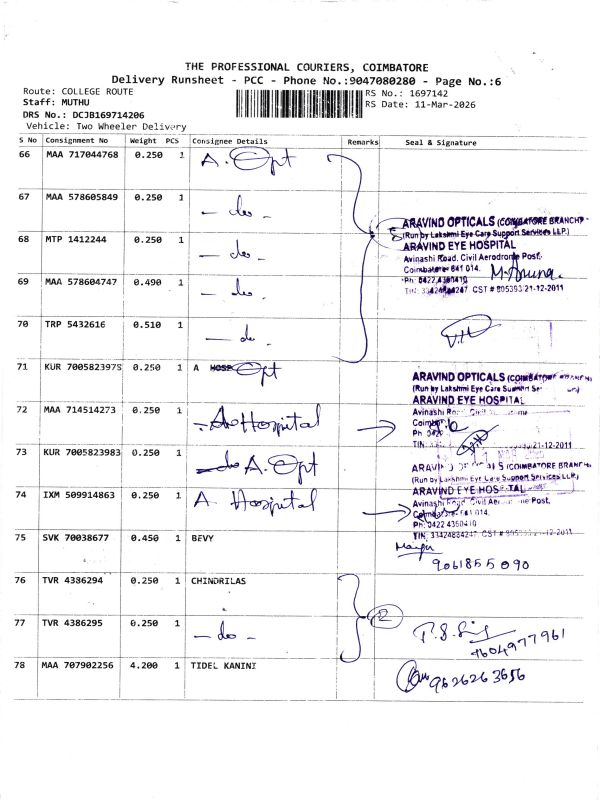 THE PROFESSIONAL COURIERS, COIMBATORE
Delivery Runsheet - PCC - Phone No.:9047080280 - Page No.:6
Route: COLLEGE ROUTE
RS No.: 1697142
Staff: MUTHU
RS Date: 11-Mar-2026
DRS No.: DCJB169714206
Vehicle: Two Wheeler Delivery
S No Consignment No Weight PCS Consignee Details Remarks Seal & Signature
66 MAA 717044768 0.250 1 A. Opt
67 MAA 578605849 0.250 1 - do -
ARAVIND OPTICALS (COIMBATORE BRANCH)
(Run by Lakshmi Eye Care Support Services LLP.)
68 MTP 1412244 0.250 1 - do -
5
ARAVIND EYE HOSPITAL
Avinashi Road, Civil Aerodrome Post,
Coimbatore- 641 014.
M. Aruna.
69 MAA 578604747 0.490 1 - do -
Ph: 0422 4360410
TIN: 33424834247 CST # 805393/21-12-2011
70 TRP 5432616 0.510 1 - do -
71 KUR 700582397S 0.250 1 A HOSP Opt
ARAVIND OPTICALS (COIMBATORE BRANCH)
(Run by Lakshmi Eye Care Support Se
ARAVIND EYE HOSPITAL
72 MAA 714514273 0.250 1 A Hospital
Avinashi Road, Civil
Coimb
Ph: 0422
TIN: /21-12-2011
73 KUR 7005823983 0.250 1 - do A. Opt
ARAVIND OPTICALS (COIMBATORE BRANCH)
(Run by Lakshmi Eye Care Support Services LLP.)
74 IXM 509914863 0.250 1 A Hospital
ARAVIND EYE HOSPITAL
Avinashi Road, Civil Post,
Coimbatore- 641 014.
Ph: 0422 4360410
TIN: 33424834247, CST # 805393/21-12-2011
75 SVK 70038677 0.450 1 BEVY
9061855090
76 TVR 4386294 0.250 1 CHINDRILAS
2
77 TVR 4386295 0.250 1 - do -
9604977961
78 MAA 707902256 4.200 1 TIDEL KANINI
9626263656